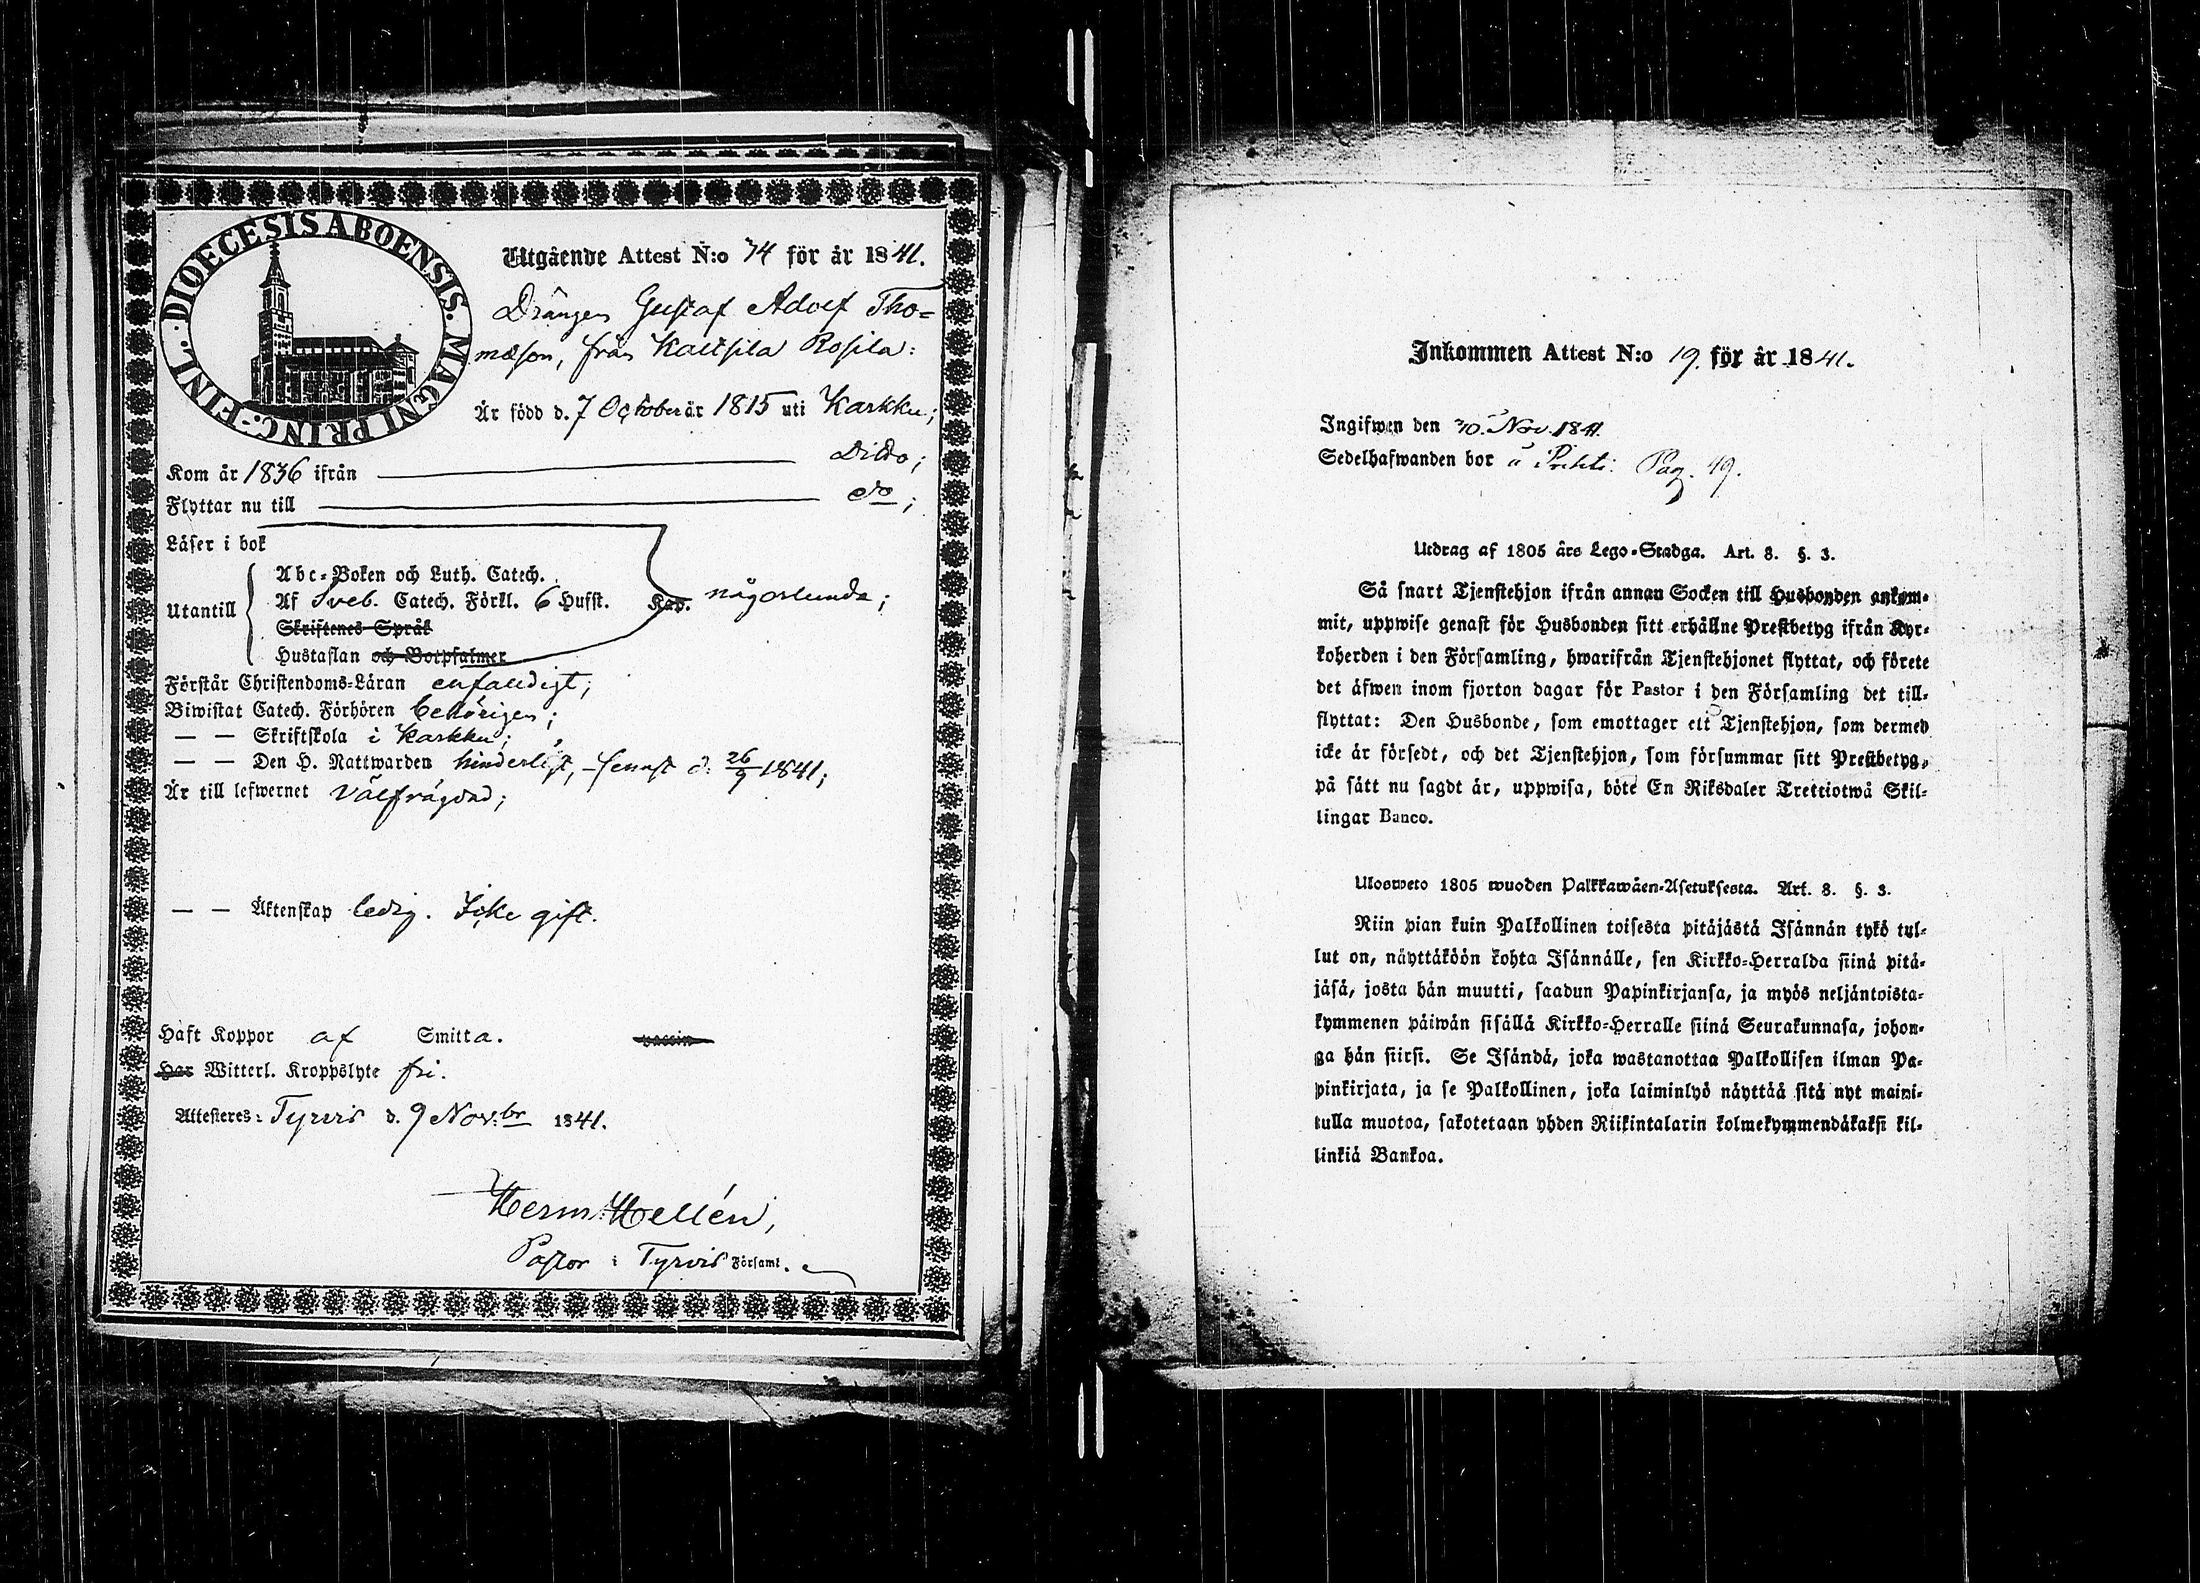 DIOECESIS ABOENSIS. MAGNI PRINC. FINL.
Utgående Attest N:o 74 för år 1841.
Drängen Gustaf Adolf Tho=
masson, från Kaltsila Rosila:
Är född d. 7 October år 1815 uti Karkku;
Kom år 1836 ifrån Dito;
Flyttar nu till do;
Läser i bok
Utantill
Abc=Boken och Luth. Catech.
Af Sveb. Catech. Förkl. 6 Hufst. Kap. någorlunda;
Skriftenes Språk
Hustaflan och Botpsalmer
Förstår Christendoms=Läran enfaldigt;
Biwistat Catech. Förhören behörigen;
— — Skriftskola i Karkku;
— — Den H. Nattwarden hinderligt, senast d. 26/9 1841;
Är till lefwernet välfrägdad;
— — Äktenskap ledig. Icke gift.
Haft Koppor af Smitta. vaccin
Har Witterl. Kroppslyte fri.
Attesteres: Tyrvis d. 9 Nov:br 1841.
Herm: Hellén,
Pastor i Tyrvis Församl.
Inkommen Attest N:o 19. för år 1841.
Ingifwen den 30. Nov. 1841.
Sedelhafwanden bor Pag. 49.
Utdrag af 1805 års Lego=Stadga. Art. 8. §. 3.
Så snart Tjenstehjon ifrån annan Socken till Husbonden ankom=
mit, uppwise genast för Husbonden sitt erhållne Prestbetyg ifrån Kyr=
koherden i den Församling, hwarifrån Tjenstehjonet flyttat, och förete
det äfwen inom fjorton dagar för Pastor i den Församling det till=
flyttat: Den Husbonde, som emottager ett Tjenstehjon, som dermed
icke är försedt, och det Tjenstehjon, som försummar sitt Prestbetyg,
på sätt nu sagdt är, uppwisa, böte En Riksdaler Trettiotwå Skil=
lingar Banco.
Uloswetо 1805 wuoden Palkkawäen=Asetuksesta. Art. 8. §. 3.
Niin pian kuin Palkollinen toisesta pitäjästä Isännän tykö tul=
lut on, näyttäköön kohta Isännälle, sen Kirkko=Herralda siinä pitä=
jäsä, josta hän muutti, saadun Papinkirjansa, ja myös neljäntoista=
kymmenen päiwän sisällä Kirkko=Herralle siinä Seurakunnasa, johon=
ga hän siirsi. Se Isändä, joka wastanottaa Palkollisen ilman Pa=
pinkirjata, ja se Palkollinen, joka laiminlyö näyttää sitä nyt maini=
tulla muotoa, sakotetaan yhden Riikintalarin kolmekymmendäkaksi kil=
linkiä Bankoa.